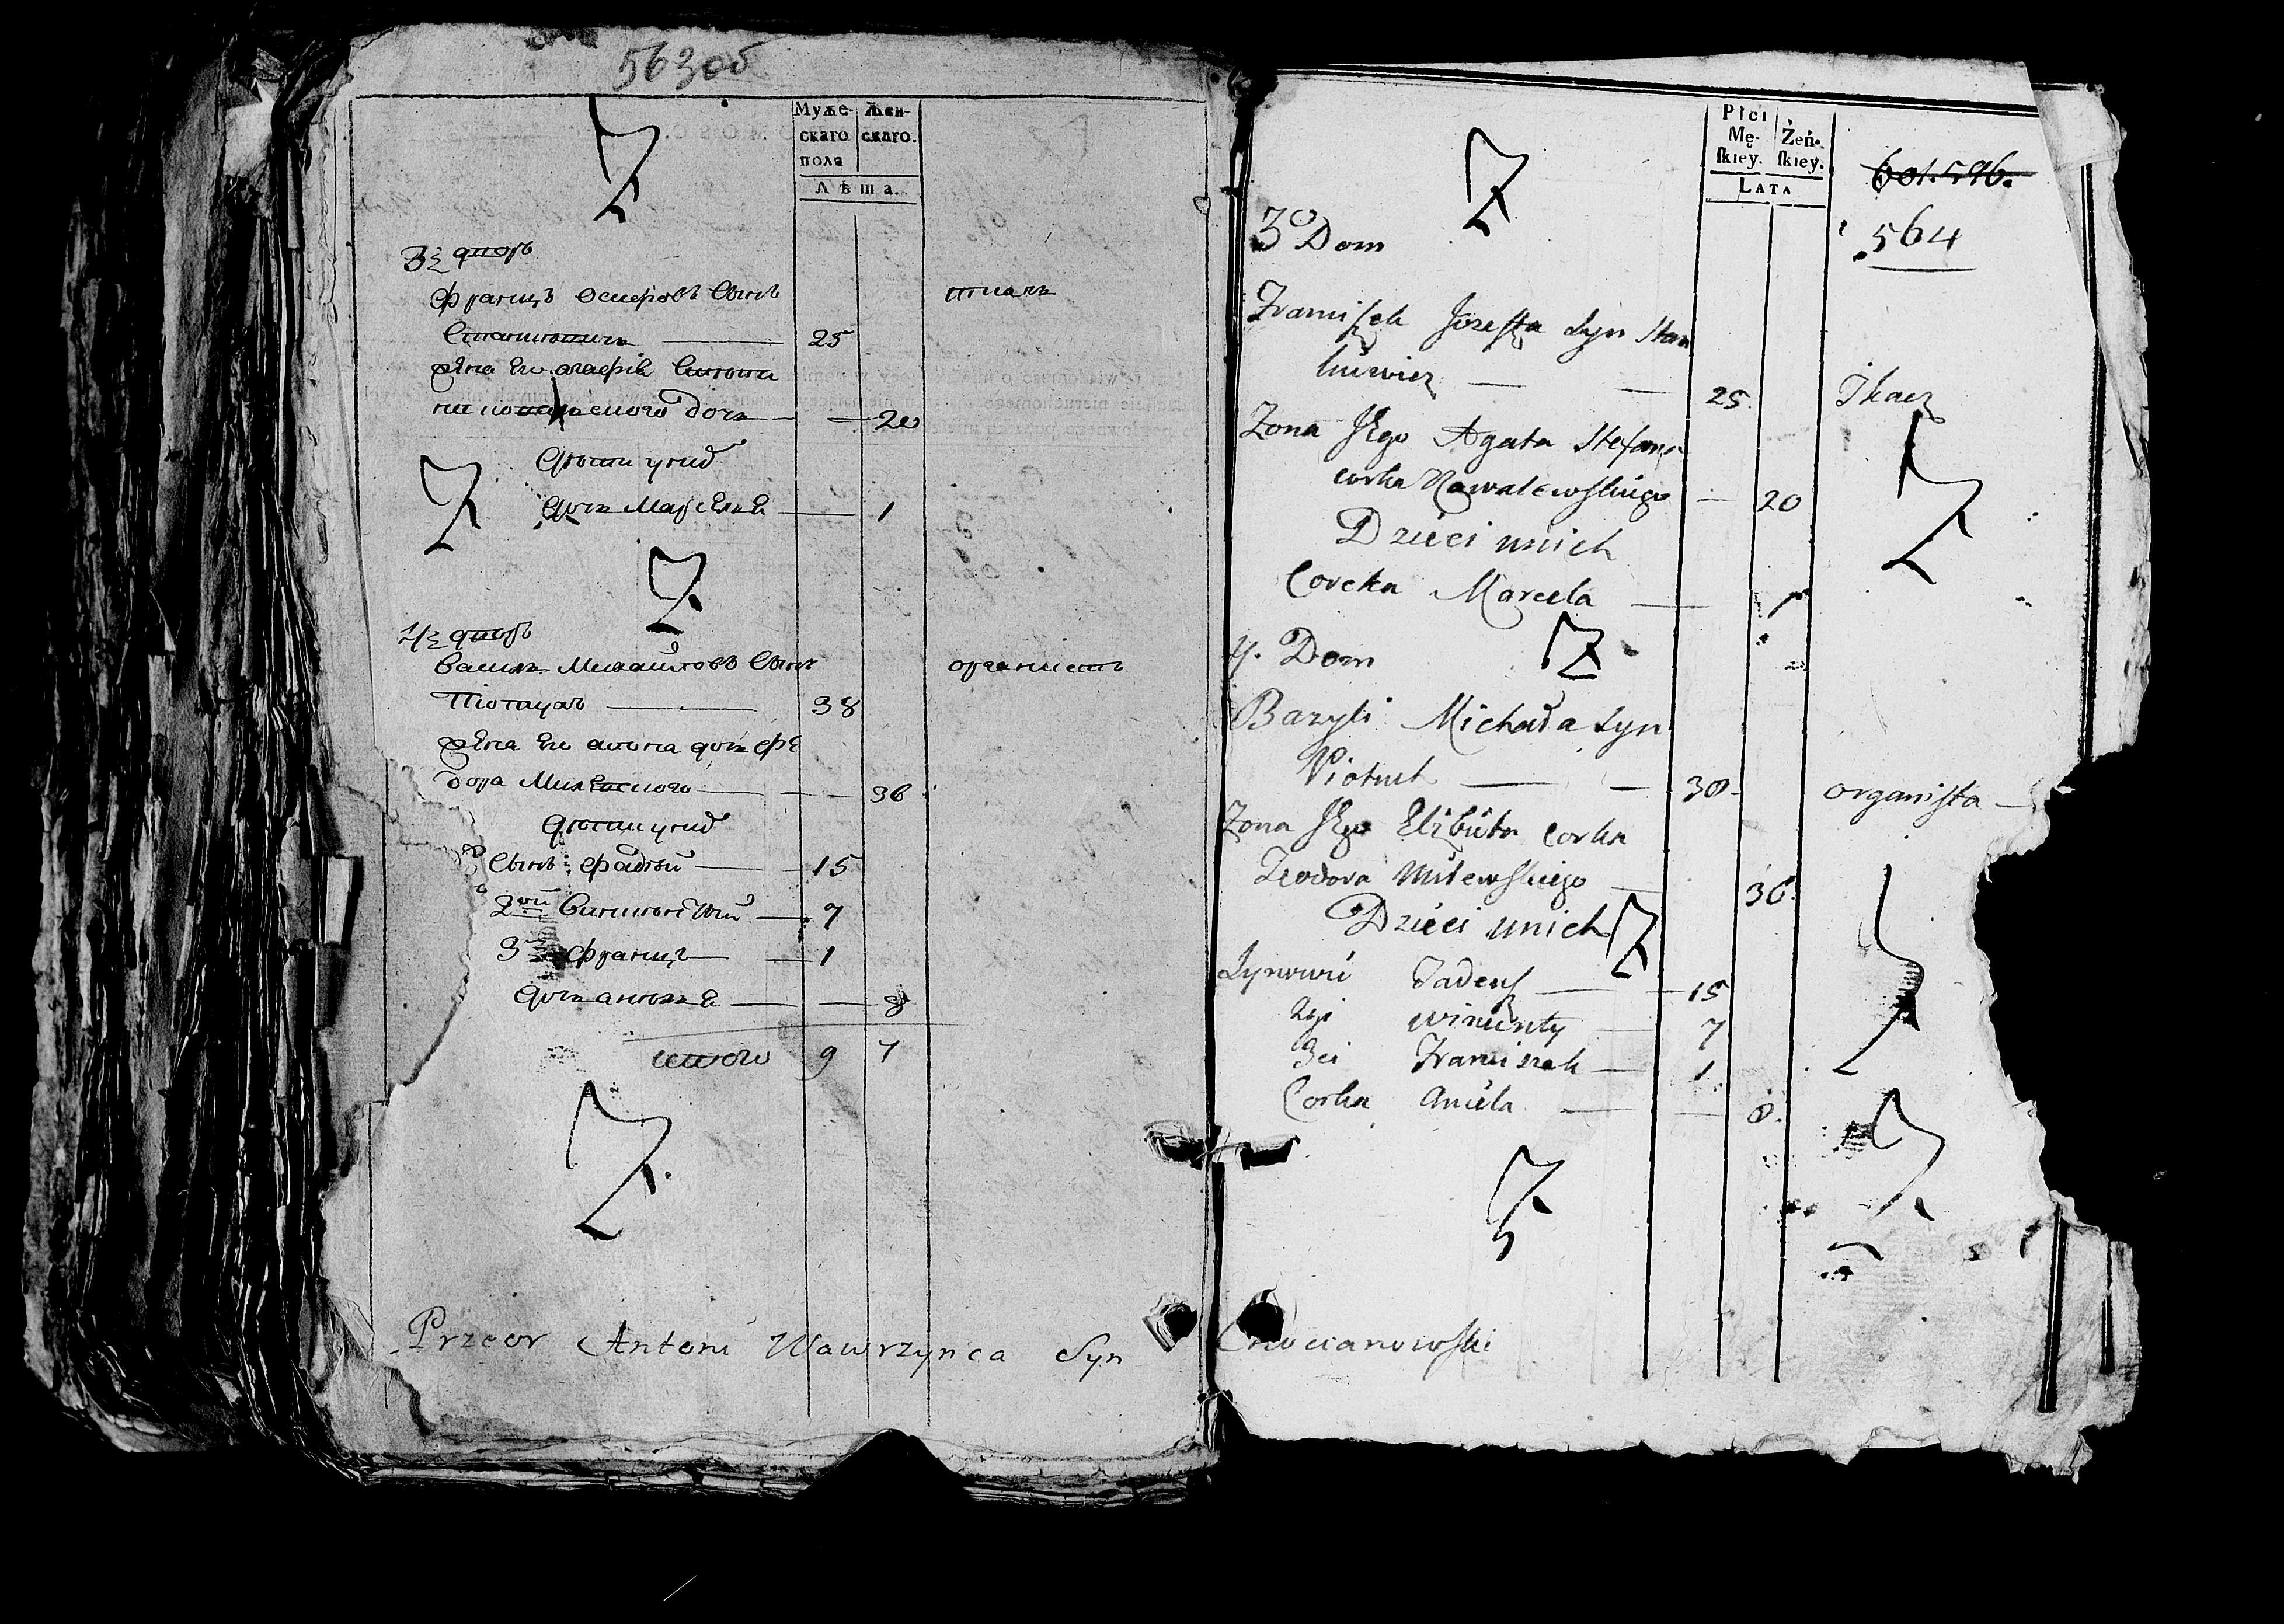 563об
Муже-
скаго
пола
Жен-
скаго.
Лѣта.
3й дворъ
Францъ Осиповъ Сынъ
ткачъ
Станкевичь 25
жена Его
на Ковалевского дочь 20
Дети у них
дочь Марселя 1
4й дворъ
Василь Михайловъ Сынъ
органистъ
Піотухъ 38
жена Его дочь Фе
дора Милевского 36
Дети у них
Сынъ: Фадей 15
2ой Викентий 7
3й Францъ 1
дочь Анеля 8
итого 9 7
Przeor Antoni Wawrzynca Syn
Płci
Mę-
ſkiey.
Żeń-
ſkiey.
LATA
601. 596.
564
3o Dom
Franciſzek Jozeffa Syn Stan
kiewicz 25 Tkacz
Zona Jego Agata Stefana
corka Kowalewſkiego 20
Dzieci unich
Corcka Marcela 1
4. Dom
Bazyli Michała Syn
Piotuch 38 organiſta
Zona Jego Elżbieta Corka
Teodora Milewſkiego 36
Dzieci unich
Synowie Tadeuſz 15
2gi Wincenty 7
3ci Franciszek 1
Corka Aniela 8
Chocianowſki